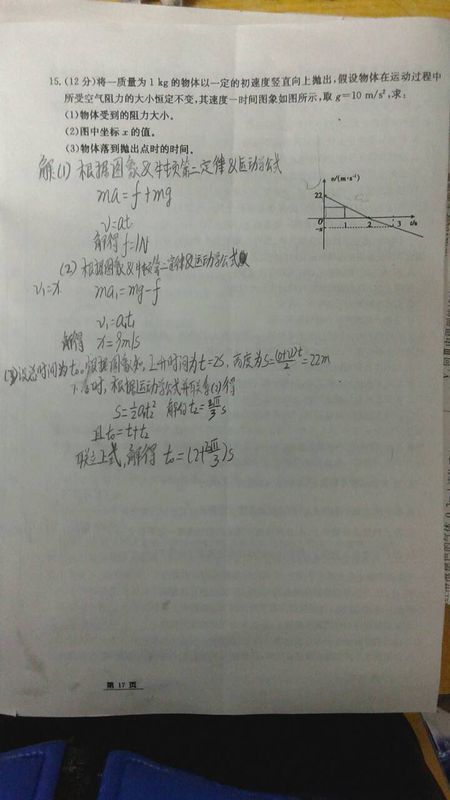 15. (12分)将一质量为1 kg的物体以一定的初速度竖直向上抛出,假设物体在运动过程中
所受空气阻力的大小恒定不变,其速度一时间图象如图所示,取g=10 m/s²,求:
(1)物体受到的阻力大小。
(2)图中坐标x的值。
(3)物体落到抛出点时的时间。
v/(m·s⁻¹)
22
0
1
2
3
t/s
-x
解(1)根据图象&牛顿第二定律&运动学公式
ma=f+mg
v=at
解得 f=1N
(2)根据图象&牛顿第二定律&运动学公式
v₁=x ma₁=mg-f
v₁=a₁t₁
解得 x=9m/s
设总时间为t₀。根据图象知,上升时间为t=2s,高度为s=(0+22)t/2=22m
时,根据运动学公式并联系(2)得
s=½a₁t₂² 解得t₂= s
且t₀=t+t₂
联立上式,解得 t₀=
第 17 页